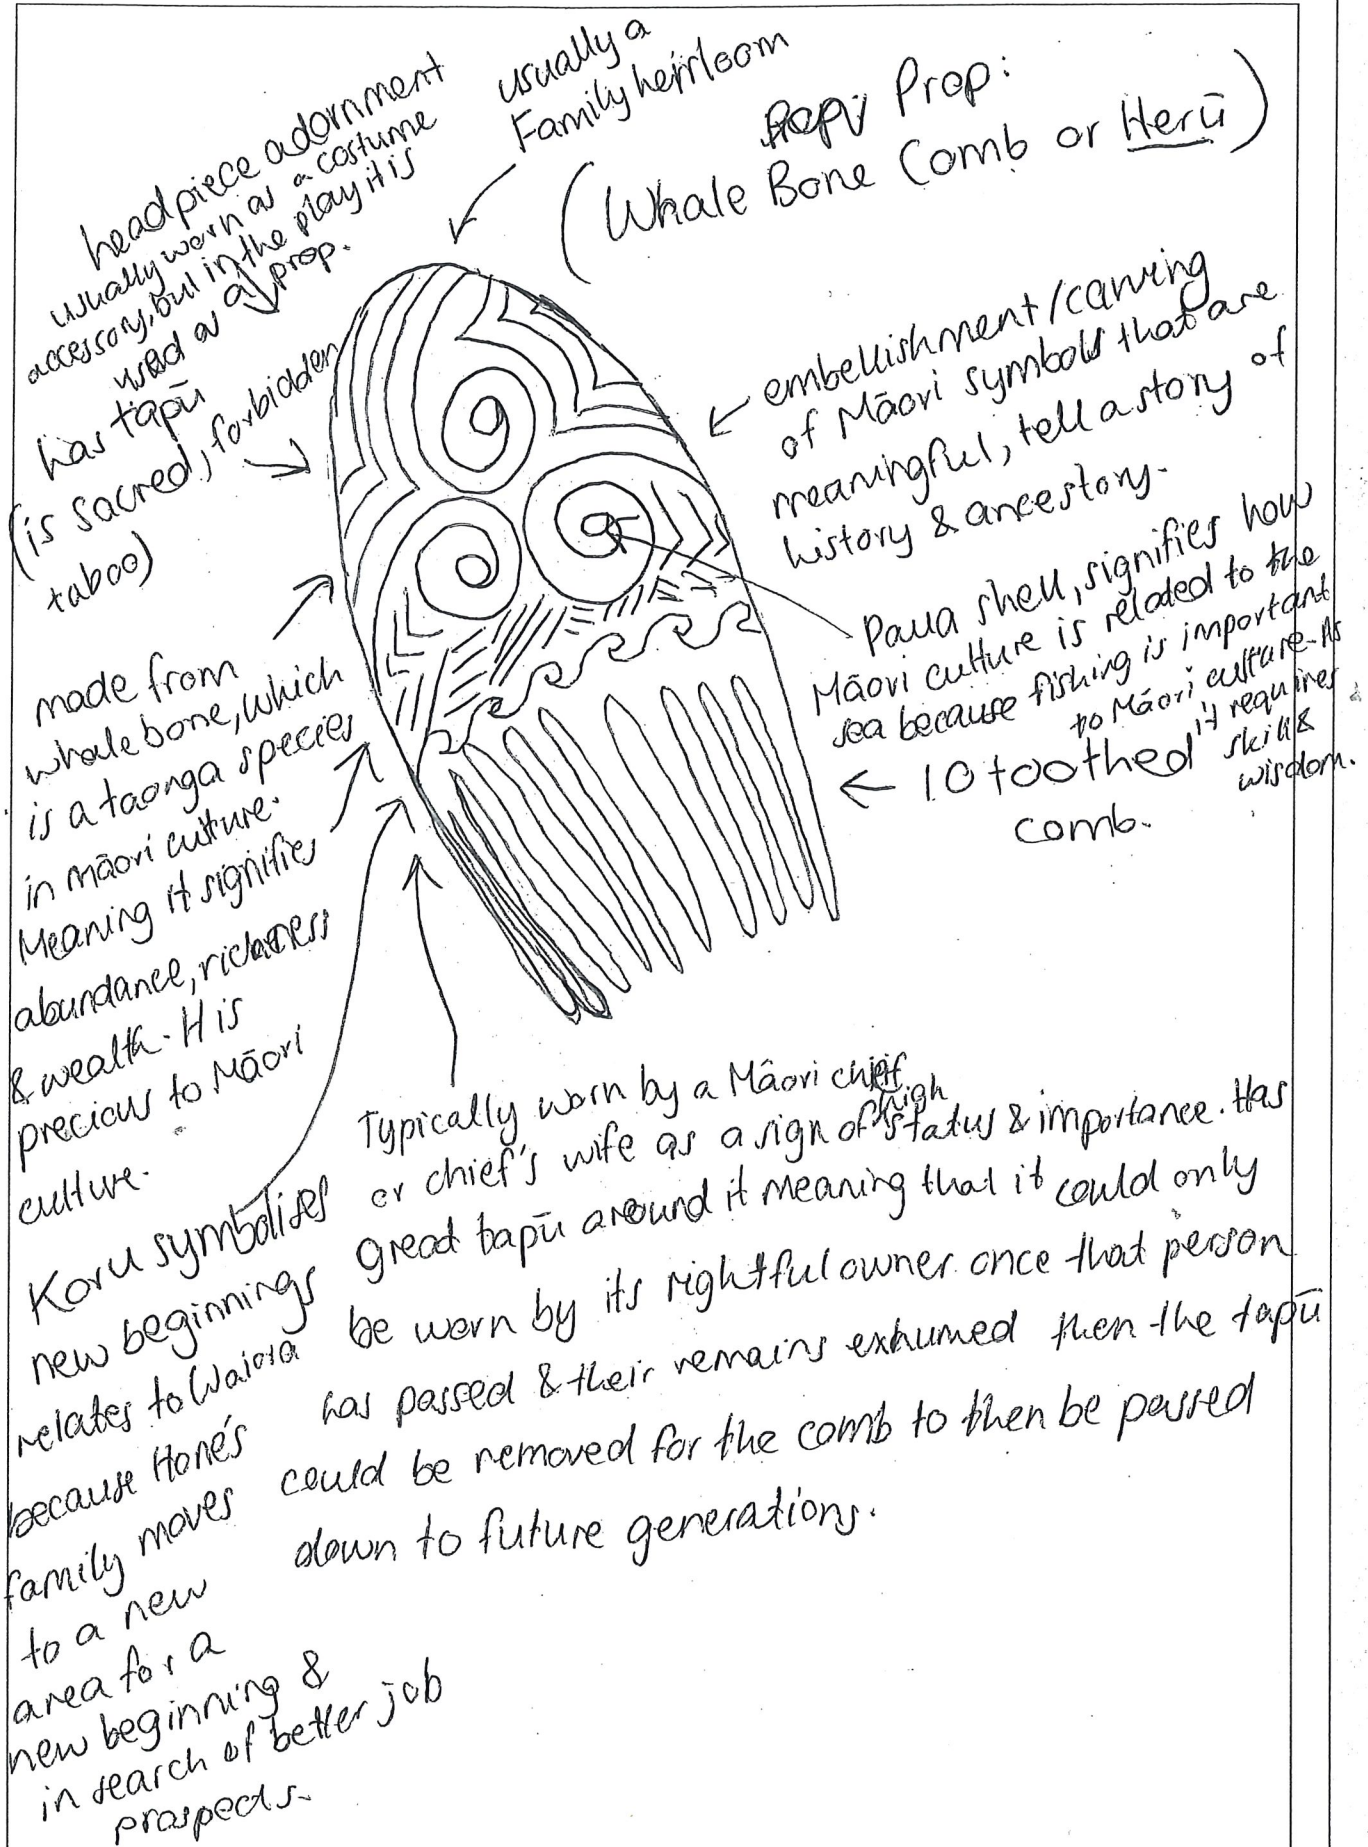 Prop:
(Whale Bone Comb or Herū)
usually a
Family heirloom
headpiece adornment
usually worn as a costume
accessory, but in the play it is
used as a prop.
has tapū
(is sacred, forbidden
taboo)
embellishment/carving
of Māori symbols that are
meaningful, tell a story of
history & ancestory.
Paua shell, signifies how
Māori culture is related to the
sea because fishing is important
to Māori culture. As
it requires
skill &
wisdom.
10 toothed
comb.
made from
whale bone, which
is a taonga species
in māori culture.
Meaning it signifies
abundance, richness
& wealth. It is
precious to Māori
culture.
Koru symbolises
new beginnings
relates to Waiora
because Hone's
family moves
to a new
area for a
new beginning &
in search of better job
prospects.
Typically worn by a Māori chief
or chief's wife as a sign of high status & importance. Has
great tapū around it meaning that it could only
be worn by its rightful owner once that person
has passed & their remains exhumed then the tapū
could be removed for the comb to then be passed
down to future generations.